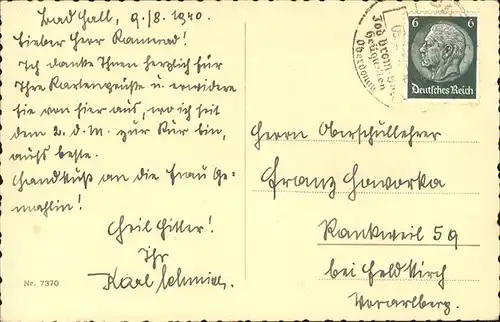 Bad Hall, 9./8. 1940.
Lieber Herr Kamerad!
Ich danke Ihnen herzlich für
Ihre Kartengrüße u. erwidere
sie von hier aus, wo ich seit
dem 2. d. M. zur Kur bin,
aufs beste.
Handkuß an die Frau Ge-
mahlin!
Heil Hitler!
Ihr
Karl Schmied.
Nr. 7370
Jod brom
Heilquellen
Oberdonau
6 6
Deutsches Reich
Herrn Oberschullehrer
Franz Haworka
Rankweil 59
bei Feldkirch
Vorarlberg.